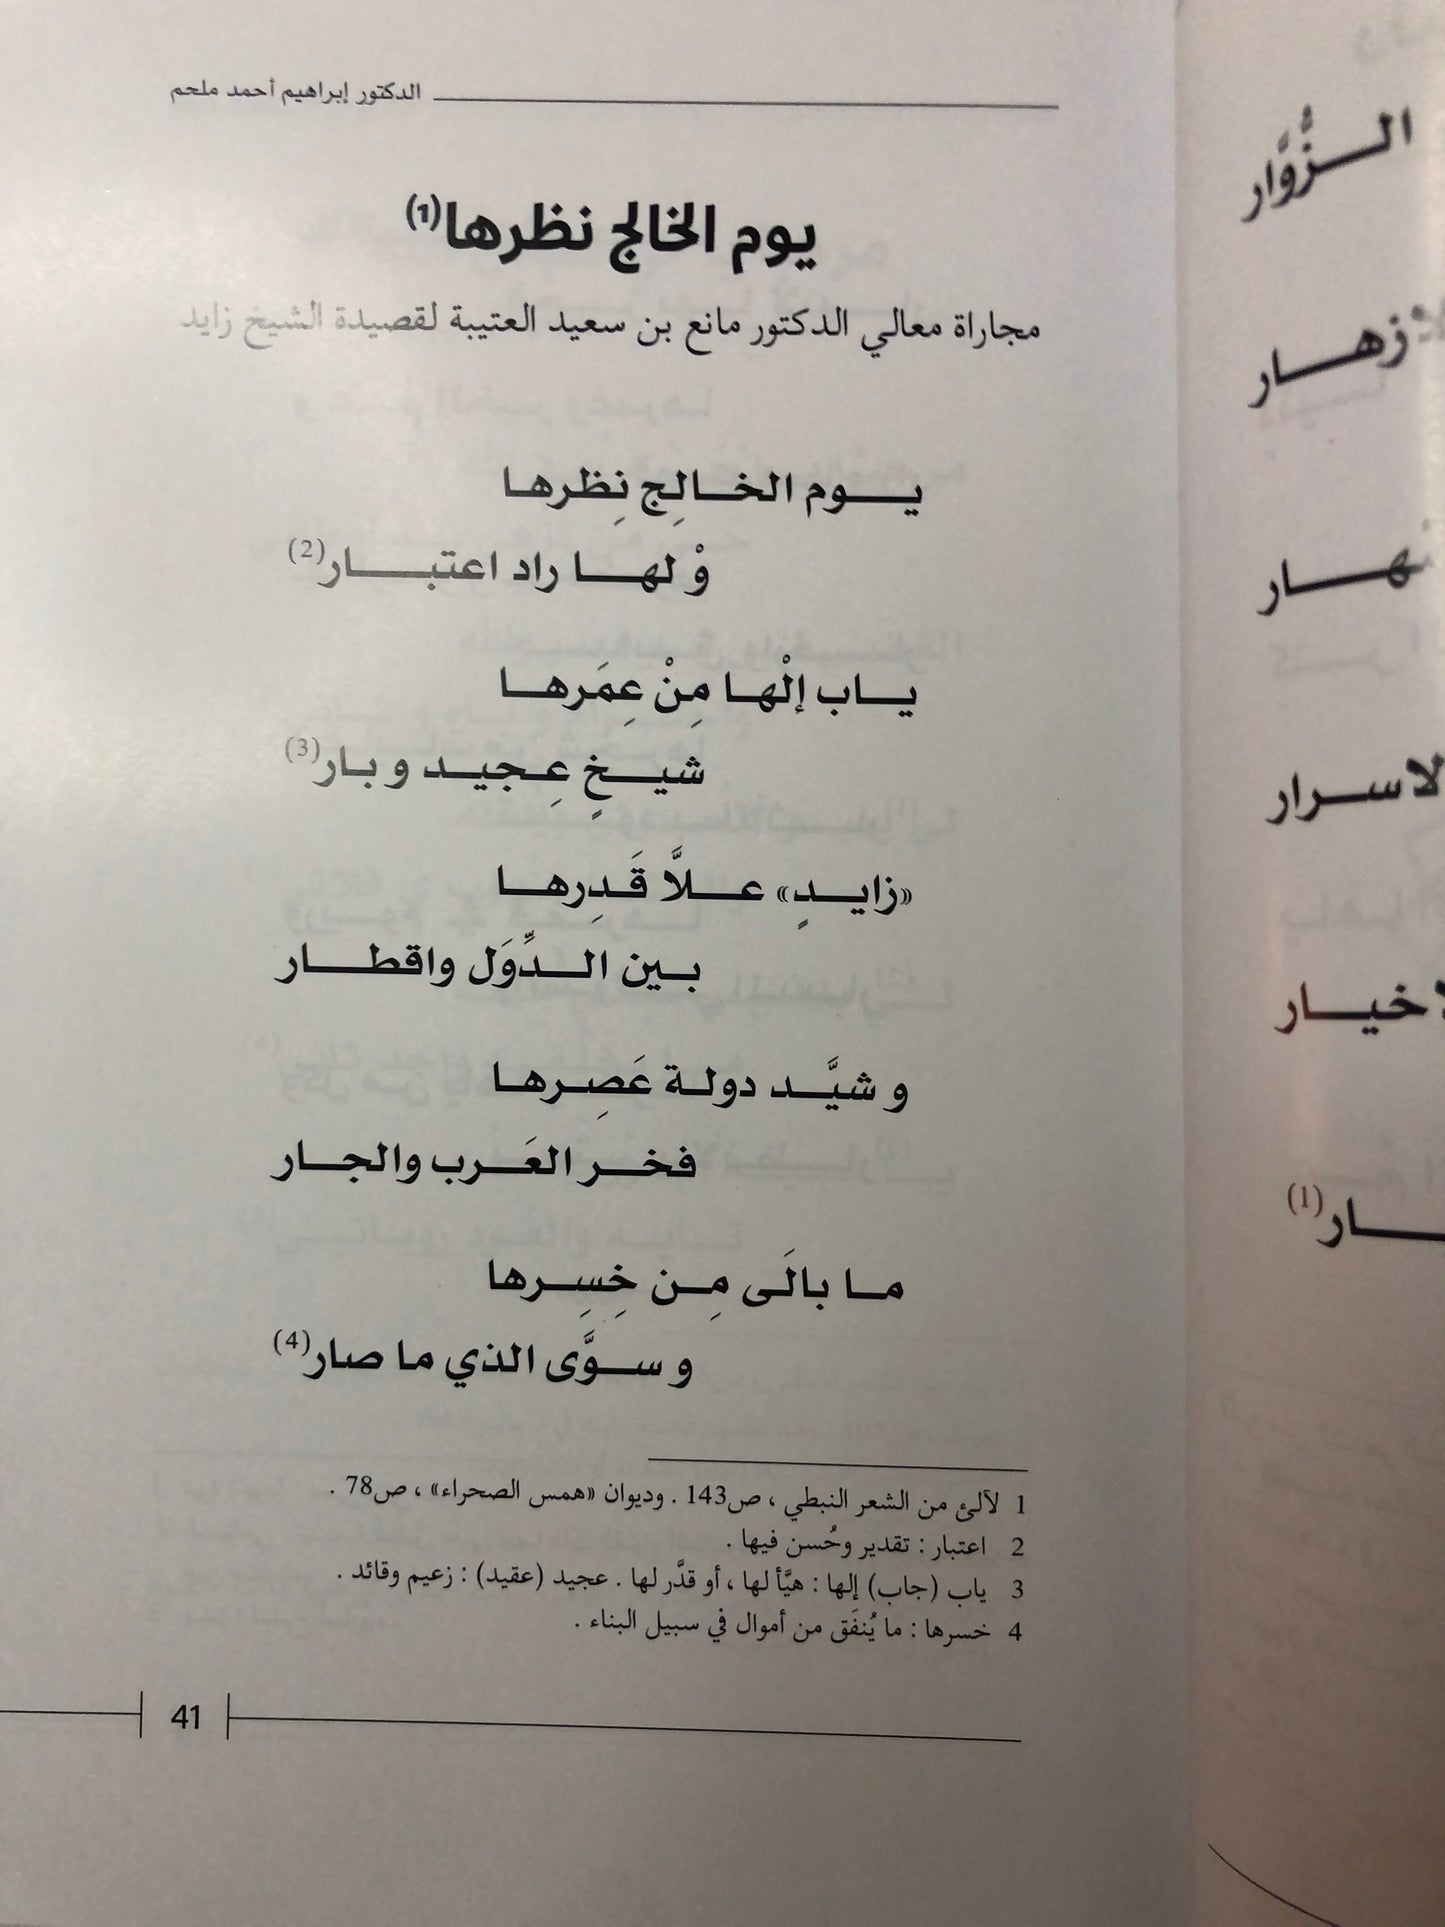 الدكتور إبراهيم أحمد ملحم
يوم الخالج نظرها(1)
مجاراة معالي الدكتور مانع بن سعيد العتيبة لقصيدة الشيخ زايد
يـــوم الخــالِج نِظرهـا
وْ لهــا راد اعتبــــار(2)
يــاب إلْهـا مِنْ عِمَرهــا
شيــخٍ عِـجيـد و بـار(3)
«زايـدٍ» عــلاَّ قَـدِرهــا
بـين الــدِّوَل واقطــار
و شيَّــد دولـة عَصِـرهـا
فخــر العَــرب والجـار
مــا بالَـى مِـن خِسِـرها
و ســوَّى الذي ما صار(4)
1 لآلئ من الشعر النبطي ، ص143 . وديوان «همس الصحراء» ، ص78 .
2 اعتبار : تقدير وحُسن فيها .
3 ياب (جاب) إلها : هيَّأ لها ، أو قدَّر لها . عجيد (عقيد) : زعيم وقائد .
4 خسرها : ما يُنفَق من أموال في سبيل البناء .
41
الــزُّوَّار
الاسـرار
(1)